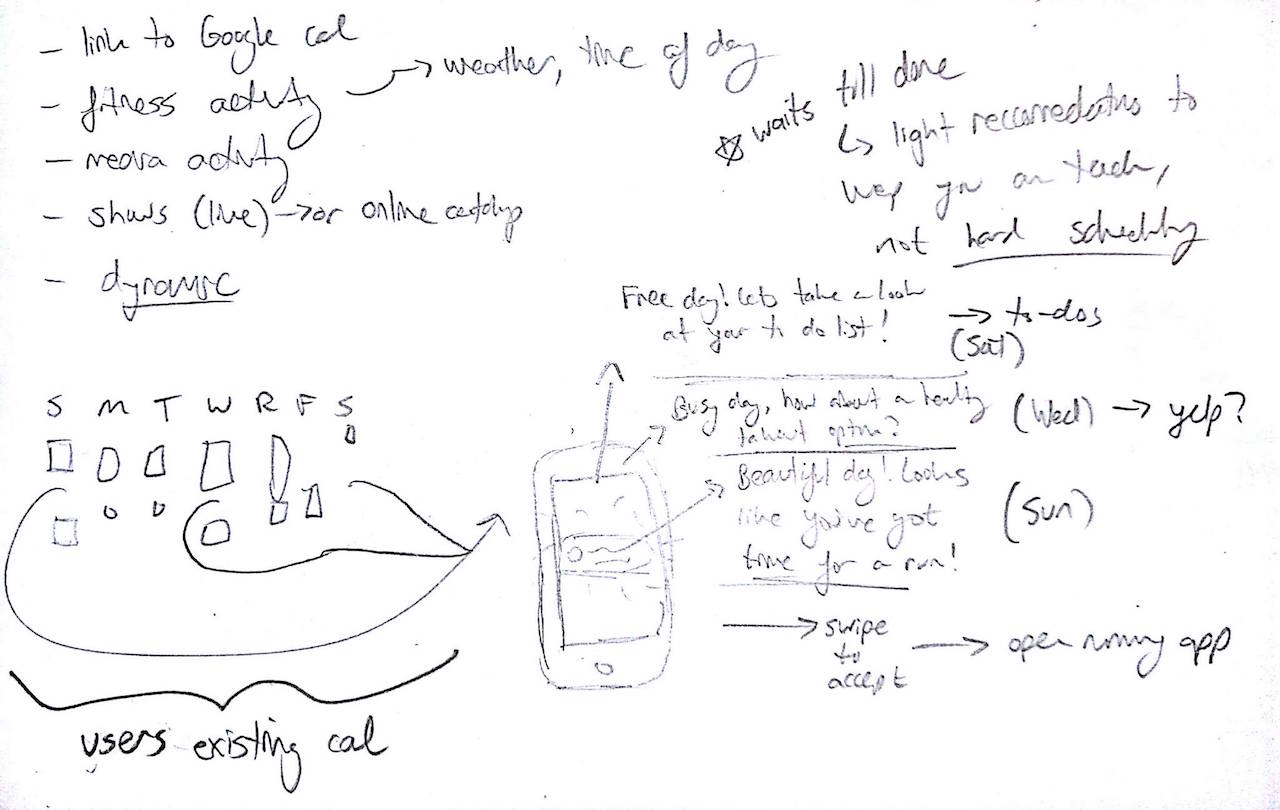 - link to Google cal
- fitness activity → weather, time of day
- media activity
- shows (live) → or online catchup
- dynamic
☆ waits till done
↳ light reccomedations to
keep you on track,
not hard scheduling
Free day! Lets take a look
at your to do list!
→ to-dos
(Sat)
Busy day, how about a healthy
takeout option?
(Wed) → yelp?
Beautiful day! Looks
like you've got
time for a run!
(Sun)
→ swipe
to
accept
→ open running app
S M T W R F S
users existing cal